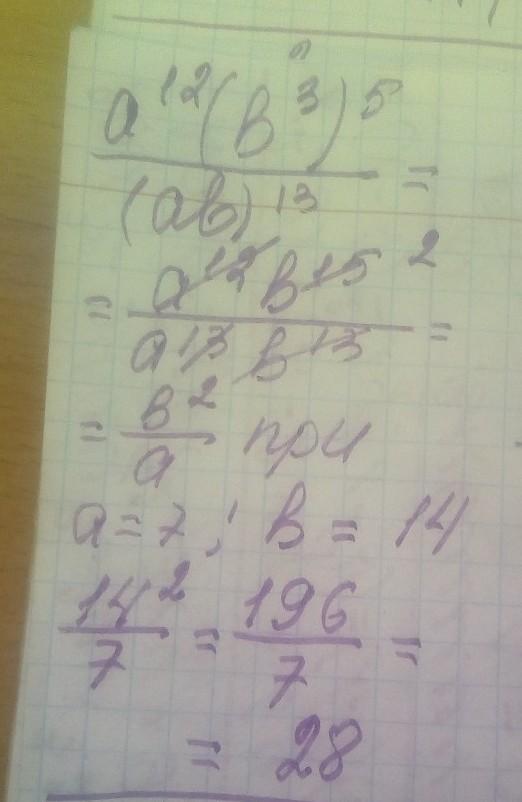 a¹²(b³)⁵
(ab)¹³ =
= a¹²b¹⁵ ²
a¹³b¹³ =
= b²
a при
a=7; b = 14
14² = 196 =
7 7
= 28